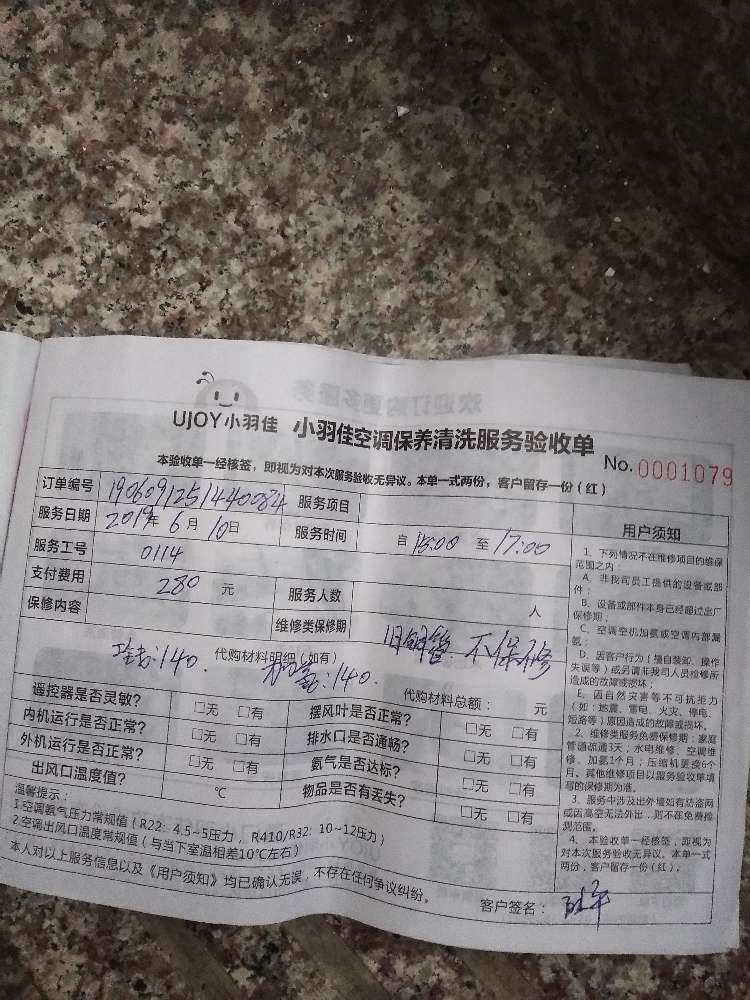 欢迎订购更多服务
UJOY小羽佳 小羽佳空调保养清洗服务验收单
No. 0001079
本验收单一经核签，即视为对本次服务验收无异议。本单一式两份，客户留存一份（红）
订单编号 1906091251440084 服务项目
服务日期 2019年 6月 10日 服务时间 自 15:00 至 17:00
服务工号 0114
支付费用 280 元 服务人数 人
保修内容 维修类保修期 旧铜管 不保修
代购材料明细（如有）
:140. :140.
代购材料总额： 元
遥控器是否灵敏？ □无 □有 摆风叶是否正常？ □无 □有
内机运行是否正常？ □无 □有 排水口是否通畅？ □无 □有
外机运行是否正常？ □无 □有 氨气是否达标？ □无 □有
出风口温度值？ ℃ 物品是否有丢失？ □无 □有
温馨提示：
1.空调氨气压力常规值（R22：4.5~5压力，R410/R32：10~12压力）
2.空调出风口温度常规值（与当下室温相差10℃左右）
本人对以上服务信息以及《用户须知》均已确认无误，不存在任何争议纠纷。
客户签名：
用户须知
1、下列情况不在维修项目的维保
范围之内：
A、非我司员工提供的设备或部
件；
B、设备或部件本身已经超过出厂
保修期；
C、空调空机加氨或空调内部漏
氨；
D、因客户行为（擅自装卸、操作
失误等）或另请非我司人员检修所
造成的故障或损坏；
E、因自然灾害等不可抗拒力
（如：地震、雷电、火灾、停电、
短路等）原因造成的故障或损坏。
2、维修类服务免费保修期：家庭
管道疏通3天，水电维修、空调维
修、加氨1个月；压缩机更换6个
月。其他维修项目以服务验收单填
写的保修期为准。
3、服务中涉及出外墙如有防盗网
或因高空无法外出，则不在免费检
测范围。
4、本验收单一经核签，即视为
对本次服务验收无异议。本单一式
两份，客户留存一份（红）。